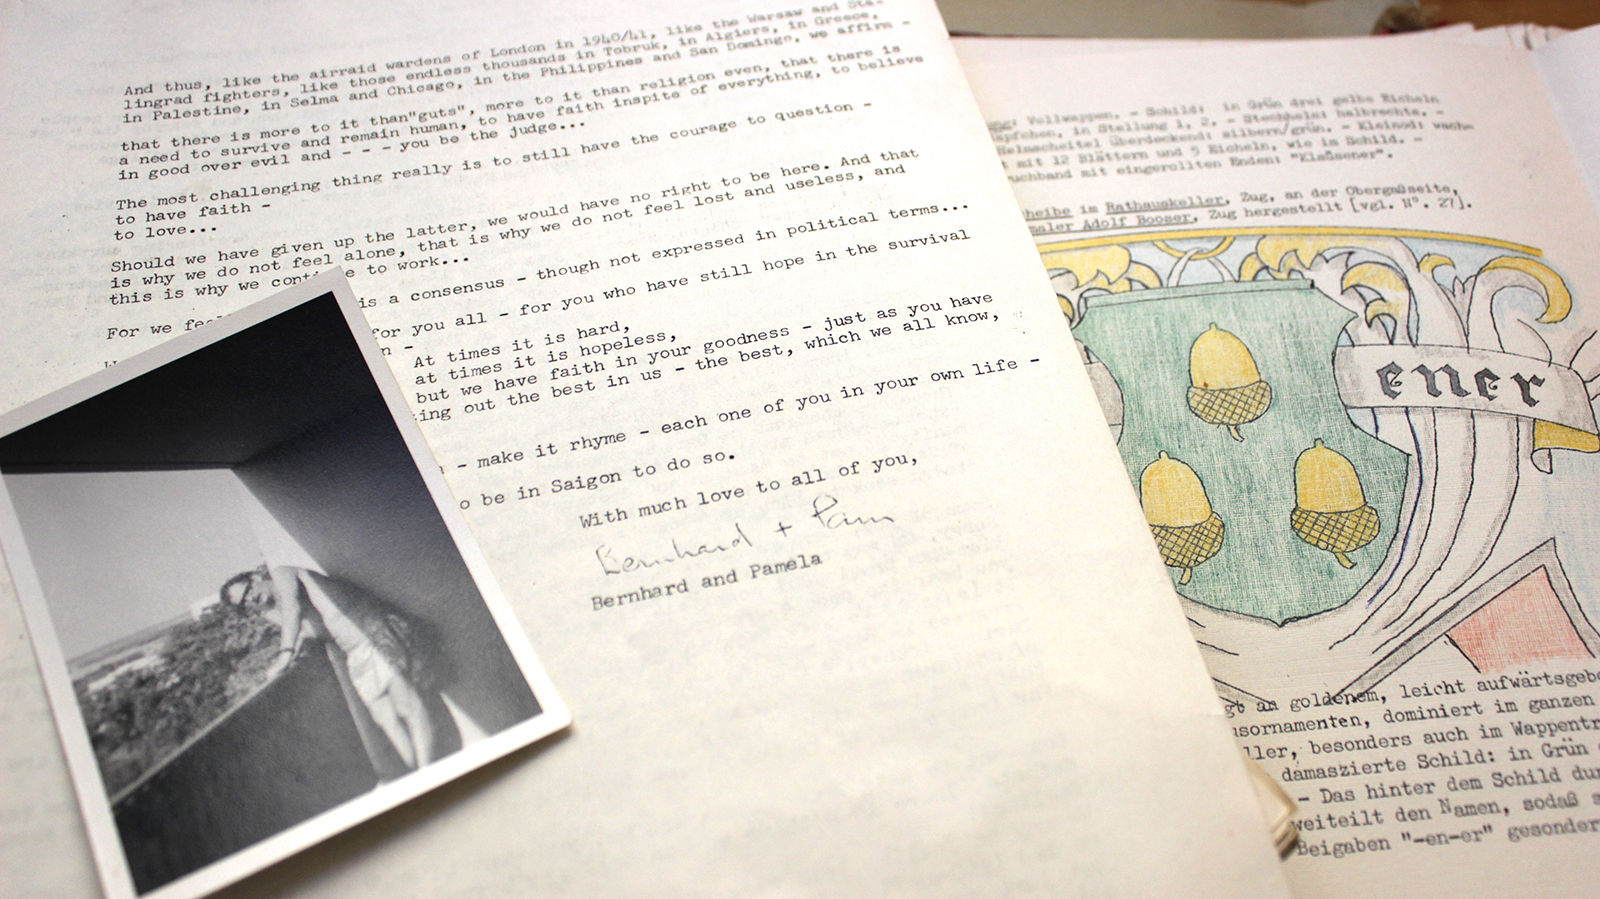 And thus, like the airraid wardens of London in 1940/41, like the Warsaw and Sta-
lingrad fighters, like those endless thousands in Tobruk, in Algiers, in Greece,
in Palestine, in Selma and Chicago, in the Philippines and San Domingo, we affirm -
that there is more to it than"guts", more to it than religion even, that there is
a need to survive and remain human, to have faith inspite of everything, to believe
in good over evil and - - - you be the judge...
The most challenging thing really is to still have the courage to question -
to have faith -
to love...
Should we have given up the latter, we would have no right to be here. And that
is why we do not feel alone, that is why we do not feel lost and useless, and
this is why we continue to work...
For we feel is a consensus - though not expressed in political terms...
for you all - for you who have still hope in the survival
n -
At times it is hard,
at times it is hopeless,
but we have faith in your goodness - just as you have
ing out the best in us - the best, which we all know,
- make it rhyme - each one of you in your own life -
o be in Saigon to do so.
With much love to all of you,
Bernhard + Pam
Bernhard and Pamela
Vollwappen. - Schild: in Grün drei gelbe Eicheln
äpfchen, in Stellung 1, 2. - Stechhelm: halbrechts. -
Helmscheitel Überdeckend: silbern/grün. - Kleinod: wach-
mit 12 Blättern und 5 Eicheln, wie im Schild. -
uchband mit eingerollten Enden: "Klaßsener".
heibe im Rathauskeller, Zug, an der Obergaßseite,
maler Adolf Booser, Zug hergestellt [vgl. N°. 27].
ener
gt an goldenem, leicht aufwärtsgebo
usornamenten, dominiert im ganzen
ller, besonders auch im Wappentr
damaszierte Schild: in Grün
- Das hinter dem Schild dur
weiteilt den Namen, sodaß
Beigaben "-en-er" gesonder